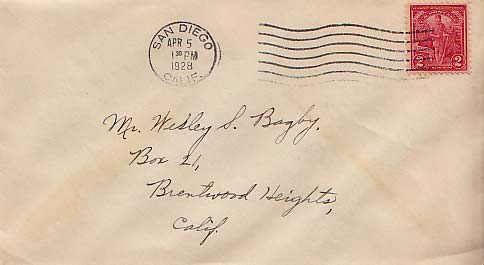 SAN DIEGO
APR 5
1 30 PM
1928
CALIF.
2 2
Mr. Wesley S. Bagby,
Box 21,
Brentwood Heights,
Calif.